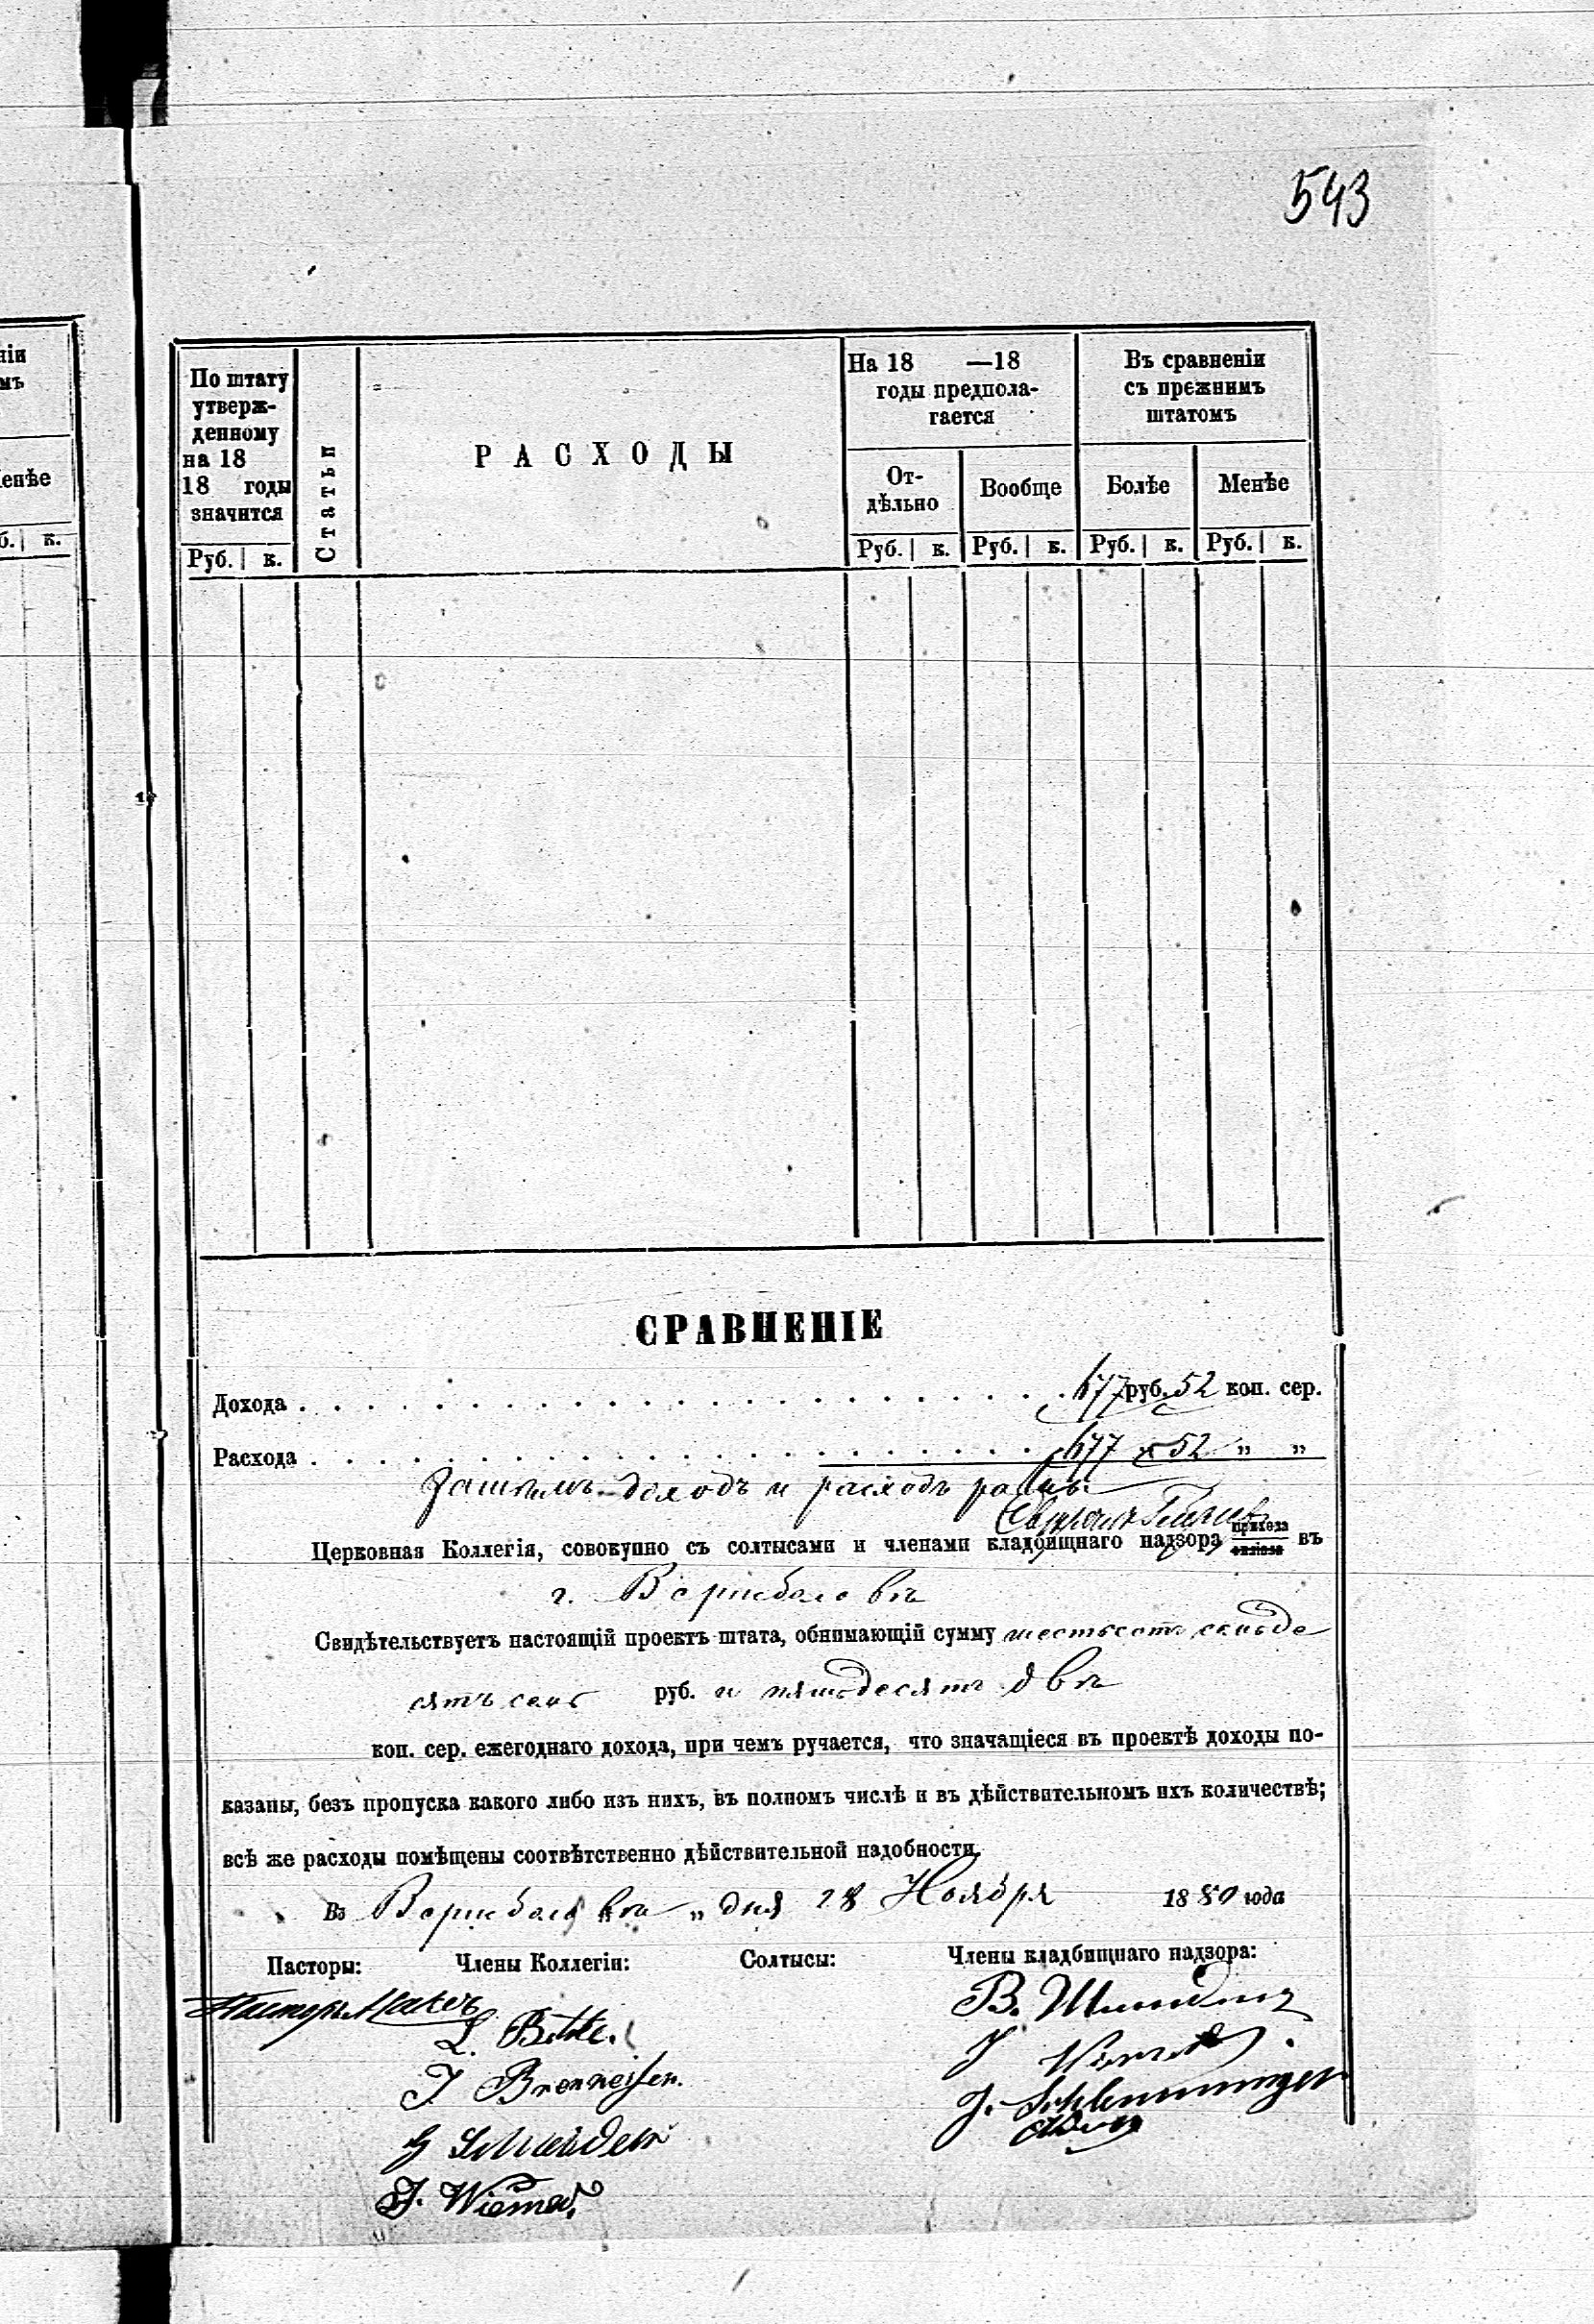 543
ніи
мъ
енѣе
б. к.
По штату
утверж-
денному
на 18
18 годы
значится
Руб. к.
Статьи
РАСХОДЫ
На 18 —18
годы предпола-
гается
От-
дѣльно
Вообще
Руб. к. Руб. к.
Въ сравненіи
съ прежнимъ
штатомъ
Болѣе Менѣе
Руб. к. Руб. к.
СРАВНЕНІЕ
Дохода . . . 677 руб. 52 коп. сер.
Расхода . . . 677 " 52 " "
Затѣмъ доходъ и расходъ равны.
Церковная Коллегія, совокупно съ солтысами и членами кладбищнаго надзора прихода филіала въ
г. Вержболовѣ
Свидѣтельствуетъ настоящій проектъ штата, обнимающій сумму шестьсотъ семьде
сятъ семь руб. и пятьдесятъ двѣ
коп. сер. ежегоднаго дохода, при чемъ ручается, что значащіеся въ проектѣ доходы по-
казаны, безъ пропуска какого либо изъ нихъ, въ полномъ числѣ и въ дѣйствительномъ ихъ количествѣ;
всѣ же расходы помѣщены соотвѣтственно дѣйствительной надобности.
Въ Вержболовѣ " дня 28 Ноября 1880 года
Пасторы: Члены Коллегіи: Солтысы: Члены кладбищнаго надзора:
Пасторъ
L.
J Brenneisen.
G Schneider
J. Wiemer.
В.
J
J. Schlemminger